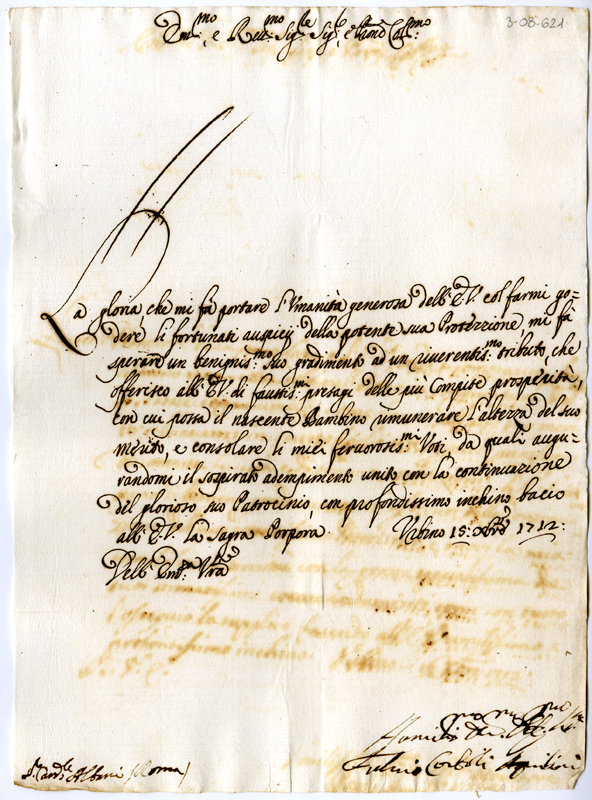 3-08-621
Em:mo, e Reu:mo Sig:re Sig:r, e Prõne Col:mo
La gloria che mi fà portare l'Vmanità generosa dell'E.V. col farmi go=
dere li fortunati auspicij della potente sua Protezzione, mi fà
sperare un benignis:mo suo gradimento ad un riuerentis:mo tributo, che
offerisco all'E.V. di faustis:mi presagi delle più compite prosperità,
con cui possa il nascente Bambino rimunerare l'altezza del suo
merito, e consolare li miei feruorosis:mi Voti, da quali augu=
randomi il sospirato adempimento unito con la continuazione
del glorioso suo Patrocinio, con profondissimo inchino bacio
all'E.V. la Sagra Porpora. Vrbino 15: Xbre 1712:
Dell'Em:a Vra
Fuluio Corboli
S.r Card.le Albani (Roma)